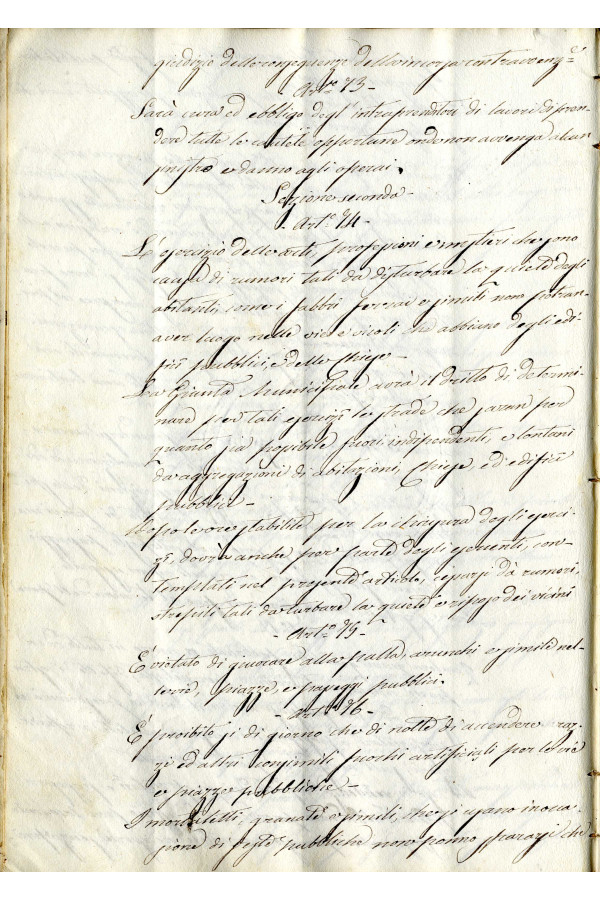 giudizio delle conseguenze della incorsa contravvenz.e
- Art.o 73 -
Sarà cura ed obbligo degl'intraprenditori di lavori di pren-
dere tutte le cautele opportune onde non avvenga alcun
sinistro e danno agli operai.
Sezione seconda -
- Art.o 74 -
L'esercizio delle arti, professioni e mestieri che sono
causa di rumori tali da disturbare la quiete degli
abitanti, come i fabbri ferrai e simili non potran-
aver luogo nelle vie e vicoli che abbiano degli edi-
fizii pubblici, e delle Chiese -
La Giunta Municipale avrà il dritto di determi-
nare per tali esercizii le strade che saran per
quanto sia possibile fuori, indipendenti, e lontani
da aggregazioni di abitazioni, Chiese, ed edificii
pubblici -
Dopo le ore stabilite per la chiusura degli eserci-
zi, dovrà anche per parte degli esercenti, con-
templati nel presente articolo, cessarsi da rumori,
strepiti tali da turbare la quiete e riposo dei vicini
- Art.o 75 -
È vietato di giuocare alla palla, e simile nel-
le vie, piazze, e passeggi pubblici.
- Art.o 76 -
È proibito sì di giorno che di notte di accendere raz-
zi ed altri consimili fuochi artificiali per le vie
e piazze pubbliche -
I mortaletti, granate e simili, che si usano in occa-
sione di feste pubbliche non ponno spararsi che